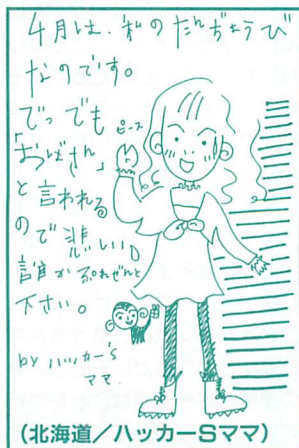 4月は、私のたんぢょうび
なのです。
でっでも
ピース
「おばさん」
と言われる
ので悲しい。
誰かぷれぜんと
下さい。
by ハッカー's
ママ.
(北海道/ハッカーSママ)